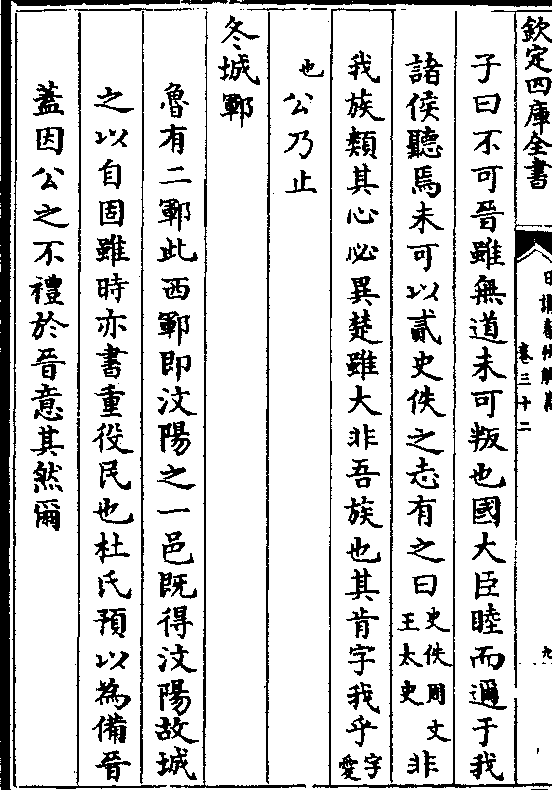 欽定四庫全書
日講春秋解義
卷三十二
九
子曰不可晉雖無道未可叛也國大臣睦而邇于我
諸侯聽焉未可以貳史佚之志有之曰史佚周文王太史非
我族類其心必異楚雖大非吾族也其肯字我乎字愛
也公乃止
冬城鄆
魯有二鄆此西鄆即汶陽之一邑既得汶陽故城
之以自固雖時亦書重役民也杜氏預以為備晉
蓋因公之不禮於晉意其然爾